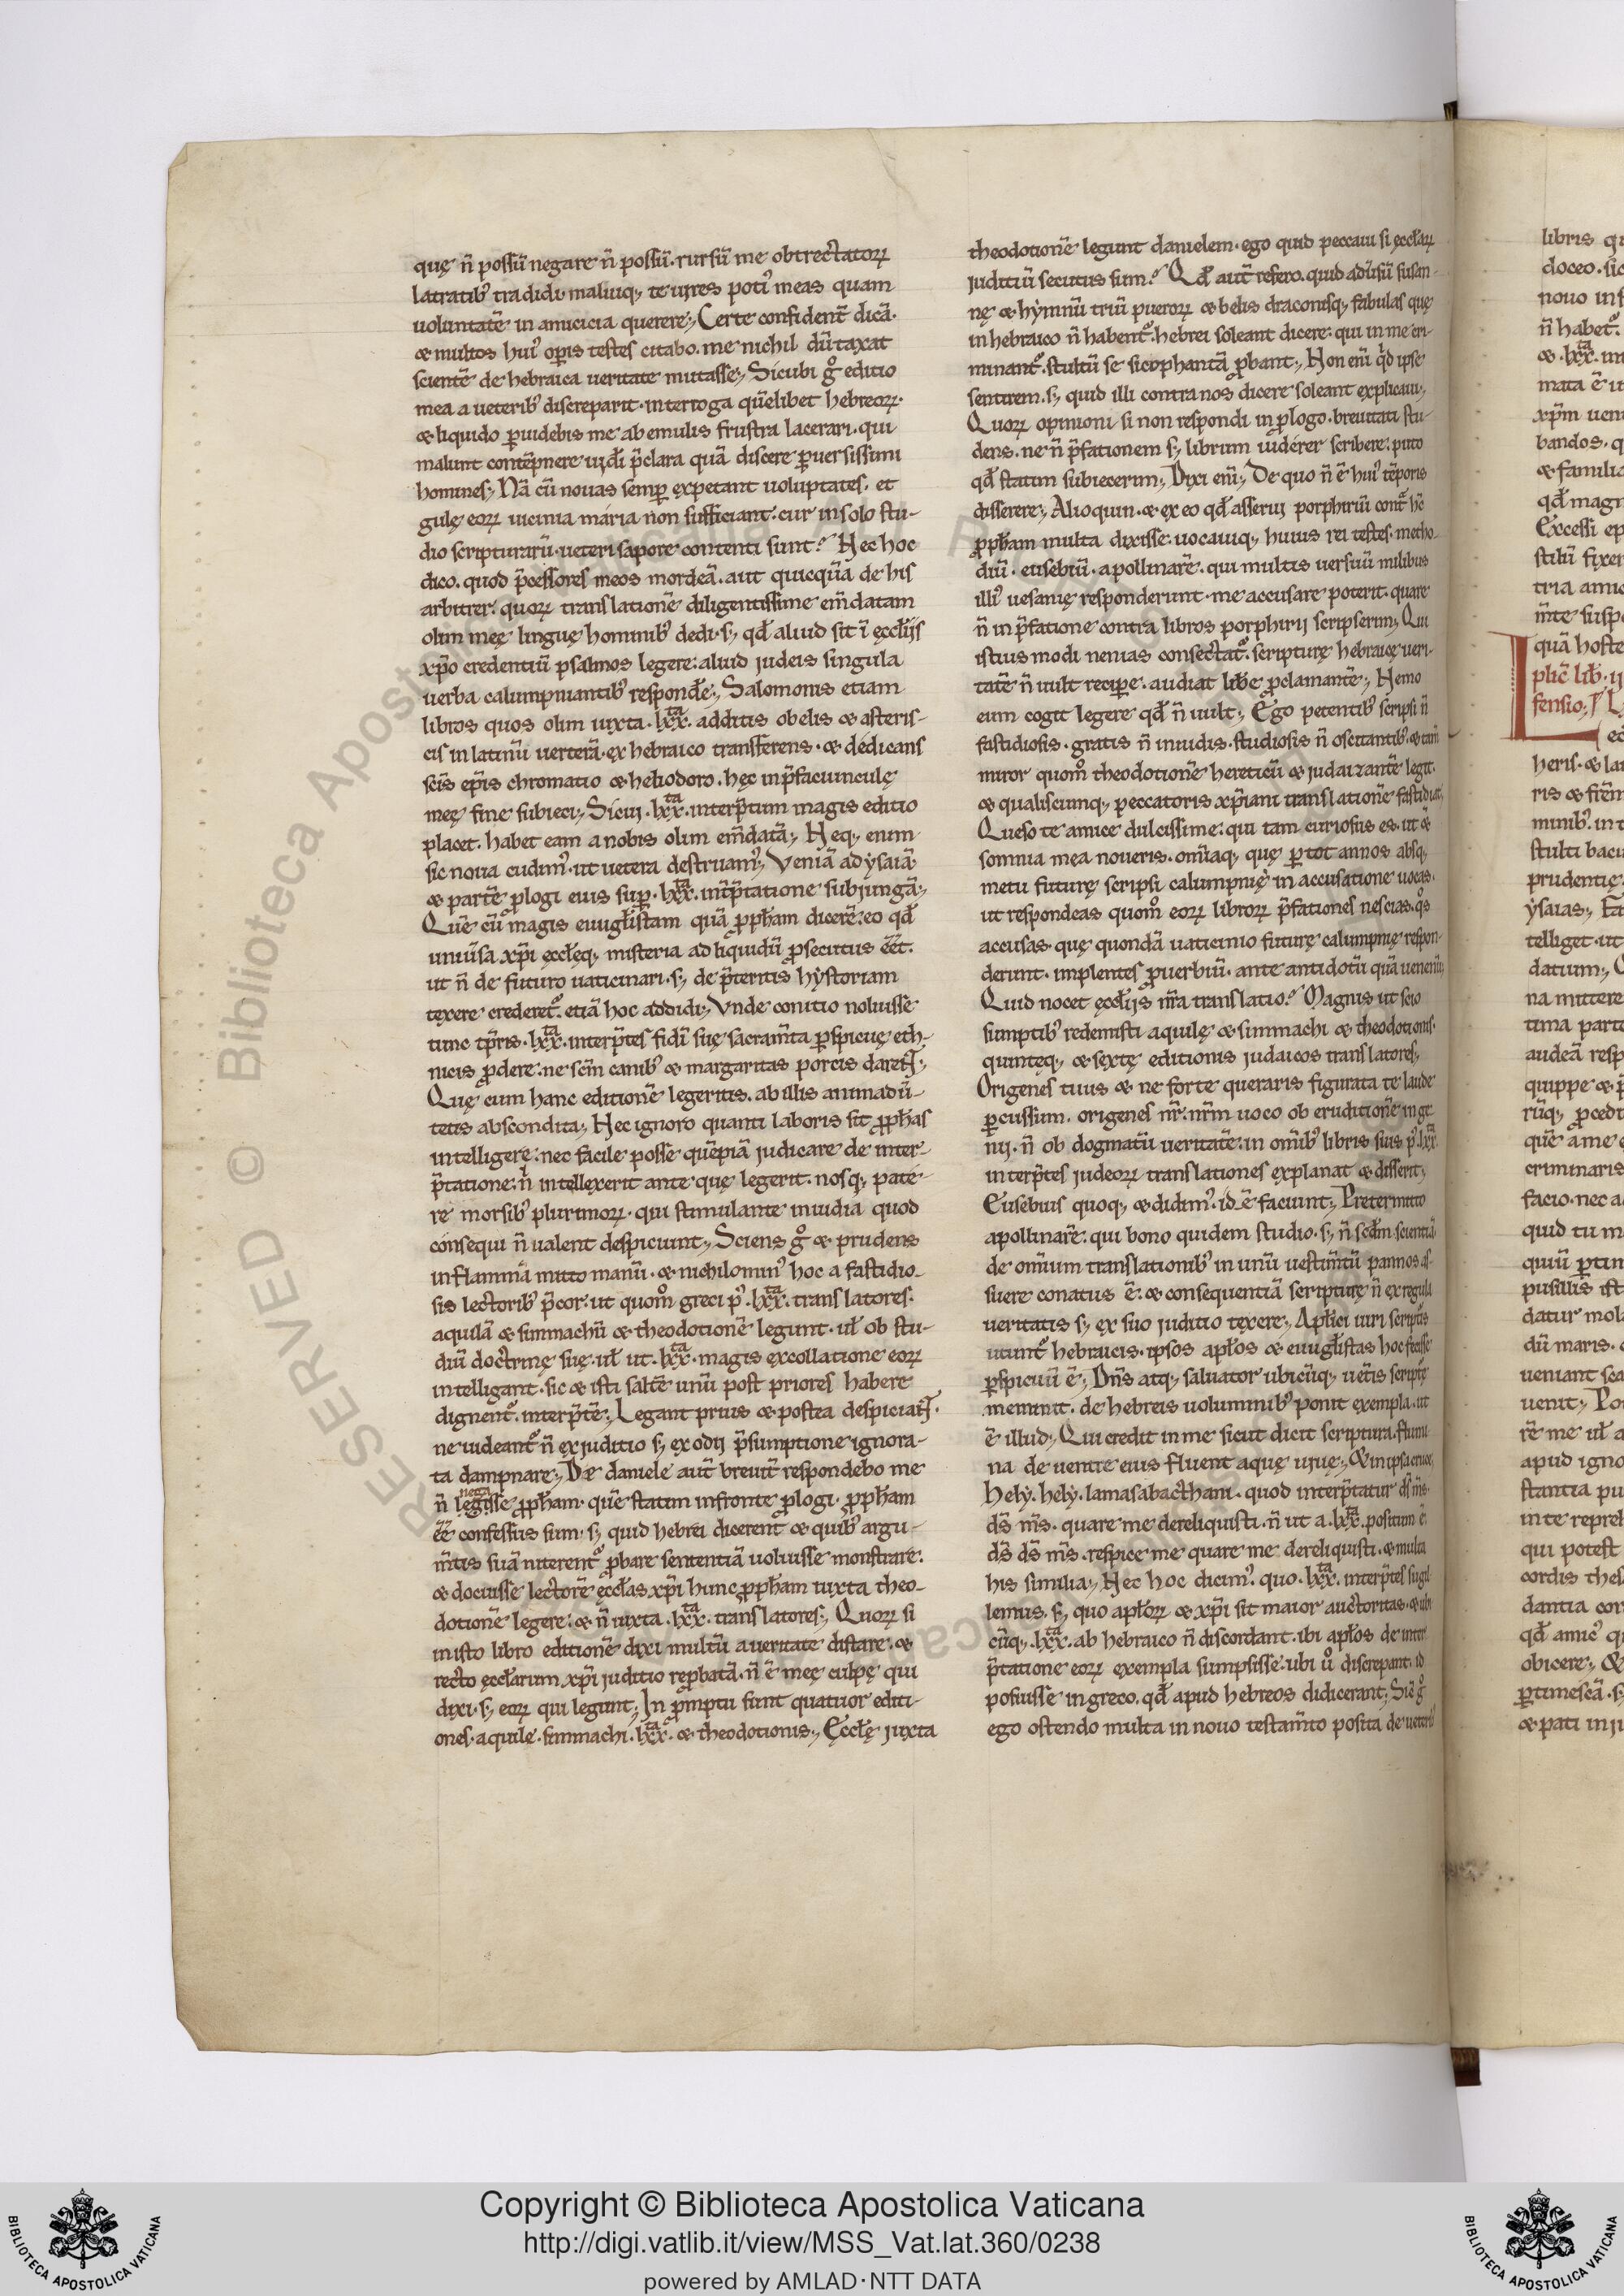 quę n̄ possū negare n̄ possū. rursū me obtrectatoꝝ
latratib; tradidi. maluiq; te uires poti' meas quam
uoluntatē in amicicia querere; Certe confident̄ dicā.
& multos hui' op̄is testes citabo. me nichil dūtaxat
scientē de hebraica ueritate mutasse; Sicubi gͦ editio
mea a ueterib; discreparit. interroga quēlibet hebreoꝝ.
& liquido ꝑuidebis me ab emulis frustra lacerari. qui
malunt contēpnere uideri p̄clara quā discere ꝑuersissimi
homines; Nā cū nouas semꝑ expetant uoluptates. et
gulę eoꝝ uicinia maria non sufficiant. cur in solo stu-
dio scripturarū. ueteri sapore contenti sunt? Nec hoc
dico. quod p̄cessores meos mordeā. aut quicquā de his
arbitrer. quoꝝ translationē diligentissime em̄datam
olim meę linguę hominib; dedi. s; qđ aliud sit ī ęccłijs
xp̄o credentiū psalmos legere: aliud judeis singula
uerba calumpniantib; respondē; Salomonis etiam
libros quos olim iuxta .lxx.ta additis obelis & asteris-
cis in latinū uerterā. ex hebraico transferens. & dedicans
sc̄is ep̄is chromatio & heliodoro. hęc in p̄faciunculę
meę fine subieci; Sicui .lxx.ta interp̄tum magis editio
placet. habet eam a nobis olim em̄datā; Neq; enim
sic noua cudim'. ut uetera destruam'; Veniā ad ẏsaiā
& partē ꝓlogi eius suꝑ .lxx.ta int̄p̄tatione subjungā;
Quē cū magis euuglīstam quā ꝓph̄am dicerē: eo qđ
uniūsa xp̄i ęccłęq; misteria ad liquidū ꝓsecutus eēt.
ut n̄ de futuro uaticinari. s; de p̄teritis hẏstoriam
texere crederet'. etiā hoc addidi; Vnde conitio noluisse
tunc tp̄ris .lxx.ta interp̄tes fidī suę sacram̄ta ꝑspicuę eth-
nicis ꝓdere: ne sc̄m canib; & margaritas porcis darent;
Quę cum hanc editionē legeritis. ab illis animadū-
tetis abscondita; Nec ignoro quanti laboris sit ꝓph̄as
intelligere: nec facile posse quēpiā judicare de inter-
p̄tatione: n̄ intellexerit ante quę legerit. nosq; pate-
re morsib; plurimoꝝ. qui stimulante inuidia quod
consequi n̄ ualent despiciunt; Sciens gͦ & prudens
in flammā mitto manū. & nichilomin' hoc a fastidio-
sis lectorib; p̄cor: ut quomͦ greci p' .lxx.ta translatores.
aquilā & simmachū & theodotionē legunt. uł ob stu-
diū doctrinę suę. uł ut .lxx.ta magis ex collatione eoꝝ
intelligant. sic & isti saltē unū post priores habere
dignent'. interp̄tē; Legant prius & postea despiciant.
ne uideant' n̄ ex juditio s; ex odij p̄sumptione ignora-
ta dampnare; De daniele aut̄ breuit̄ respondebo me
nega
n̄ legisse ꝓph̄am. quē statim in fronte ꝓlogi. ꝓph̄am
eē confessus sum. s; quid hebrei dicerent & quib; argu-
m̄tis suā niterent' ꝓbare sententiā uoluisse monstrare:
& docuisse lectorē ęccłas xp̄i hunc ꝓph̄am iuxta theo-
dotionē legere: & n̄ iuxta .lxx.ta translatores; Quoꝝ si
in isto libro editionē dixi multū a ueritate distare. &
recto ęccłarum xp̄i juditio reꝓbatā. n̄ ē meę culpę qui
dixi. s; eoꝝ qui legunt; In ꝓmptu sunt quatuor editi-
ones. aquile. simmachi. lxx.ta & theodotionis; Ęccłę juxta
theodotionē legunt danielem. ego quid peccaui si ęccłaꝝ
juditiū secutus sum? Qđ aut̄ refero. quid adūsū susan-
nę & hẏmnū triū pueroꝝ & belis draconisq; fabulas quę
in hebraico n̄ habent'. hebrei soleant dicere: qui in me cri-
minant'. stultū se sicophantā ꝓbant; Non enī qd ipse
sentirem. s; quid illi contra nos dicere soleant explicaui;
Quoꝝ opinioni si non respondi in ꝓlogo. breuitati stu-
dens. ne n̄ p̄fationem s; librum uiderer scribere: puto
qđ statim subiecerim; Dixi enī; De quo n̄ ē hui' tēporis
disserere; Alioquin. & ex eo qđ asserui porphiriū cont' hc̄
ꝓph̄am multa dixisse. uocauiq; huius rei testes. metho-
diū. eusebiū. apollinarē. qui multis uersuū milibus
illi' uesanię responderunt. me accusare poterit. quare
n̄ in p̄fatione contra libros porphirij scripserim; Qui
istius modi nenias consectat'. scripturę hebraicę ueri-
tatē n̄ uult reciꝑe. audiat libe ꝓclamantē; Nemo
eum cogit legere qđ n̄ uult; Ego petentib; scripsi n̄
fastidiosis. gratis n̄ inuidis. studiosis n̄ oscitantib; & tam̄
miror quomͦ theodotionē hereticū & judaizantē legit.
& qualiscunq; peccatoris xp̄iani translationē fastidiat;
Queso te amice dulcissime: qui tam curiosus es. ut &
somnia mea noueris. om̄iaq; quę ꝑ tot annos absq;
metu futurę scripsi calumpnię in accusatione uocas.
ut respondeas quomͦ eoꝝ libroꝝ p̄fationes nescias. qͦs
accusas. quę quondā uaticinio futurę calumpnię respon-
derunt. implentes ꝓuerbiū. ante antidotū quā uenenū;
Quid nocet ęccłijs nr̄a translatio? Magnis ut scio
sumptib; redemisti aquilę & simmachi & theodotionis.
quintęq; & sextę editionis judaicos translatores;
Origenes tuus & ne forte queraris figurata te laude
ꝑcussum. origenes nr̄. nr̄m uoco ob eruditionē inge
nij. n̄ ob dogmatū ueritatē: in om̄ib; libris suis p' .lxx.ta
interp̄tes judeoꝝ translationes explanat & disserit;
Eusebius quoq; & didim'. id ē faciunt; Pretermitto
apollinarē. qui bono quidem studio. s; n̄ scđm scientiā
de om̄ium translationib; in unū uestim̄tū pannos as-
suere conatus ē: & consequentiā scripturę n̄ ex regula
ueritatis s; ex suo juditio texere; Apłici uiri scripturis
utunt' hebraicis. ipsos apłos & euuglīstas hoc fecisse
ꝑspicuū ē; Dn̄s atq; saluator ubicūq; uetis̄ scriptę
meminit. de hebreis uoluminib; ponit exempla. ut
ē illud; Qui credit in me sicut dicit scriptura. flumi
na de uentre eius fluent aquę uiuę; & in ipsa cruce.
Helẏ. helẏ. lamasabacthani. quod interp̄tatur ds̄ ms̄.
ds̄ ms̄. quare me dereliquisti. n̄ ut a .lxx.ta positum ē.
ds̄ ds̄ ms̄. respice me quare me dereliquisti. & multa
his similia; Nec hoc dicim'. quo .lxx.ta interp̄tes sugil
lemus. s; quo apłoꝝ & xp̄i sit maior auctoritas. & ubi
cūq; .lxx.ta ab hebraico n̄ discordant. ibi apłos de inter
p̄tatione eoꝝ exempla sumpsisse. ubi uͦ discrepant. id
posuisse in greco. qđ apud hebreos didicerant; Sic̄ gͦ
ego ostendo multa in nouo testam̄to posita de ueterib;
libris
doceo. sic
n̄ habet'.
mata ē
bandos.
& familia
qđ magn
Excessi ep
tria amic
quā hoste
plic̄ lib̄. ij
fensio;
heris. & la
minib;. in t
stulti bacu
prudentię
ẏsaias;
telliget. ut
datum;
na mittere
tima parte
audeā resp
quippe & p
quē a me
criminaris
facio. nec a
quid tu m
quiū ꝑtin
pusillis ist
datur mola
dū maris.
ueniant sca
uenit;
rē me uł a
apud igno
stantia pu
in te repreh
qui potest
cordis thes
dantia cor
qđ amic' q
obicere;
ꝑtimescā. s;
& pati inju
Copyright © Biblioteca Apostolica Vaticana
http://digi.vatlib.it/view/MSS_Vat.lat.360/0238
powered by AMLAD·NTT DATA
BIBLIOTECA APOSTOLICA VATICANA
BIBLIOTECA APOSTOLICA VATICANA
RESERVED © Biblioteca Apostolica